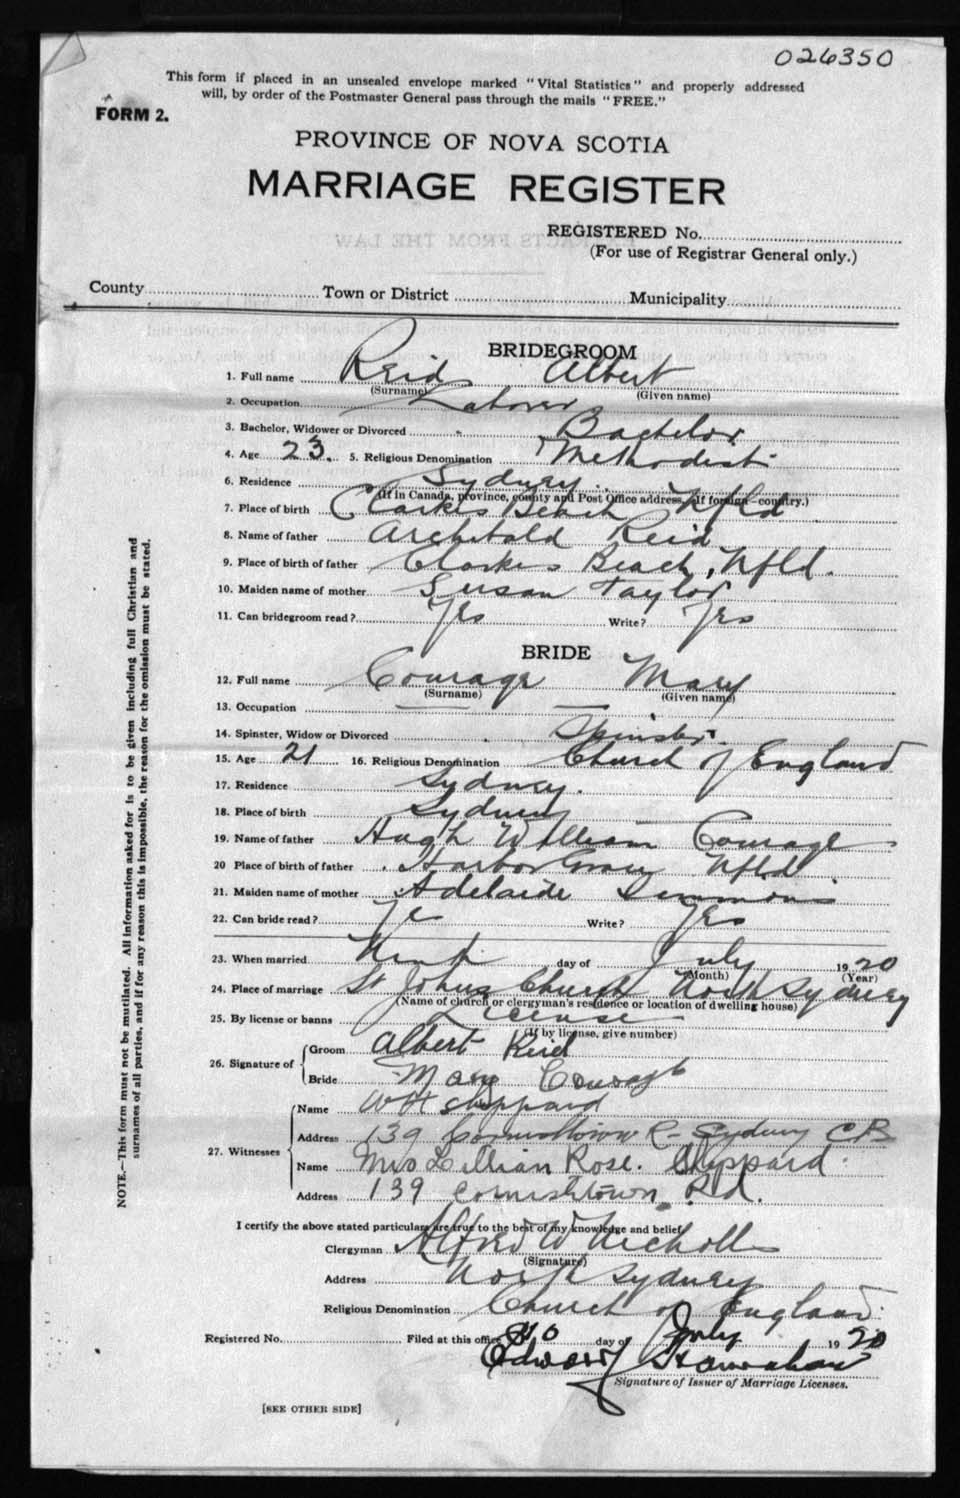 026350
This form if placed in an unsealed envelope marked "Vital Statistics" and properly addressed
will, by order of the Postmaster General pass through the mails "FREE."
FORM 2.
PROVINCE OF NOVA SCOTIA
MARRIAGE REGISTER
REGISTERED No.
(For use of Registrar General only.)
County Town or District Municipality
BRIDEGROOM
1. Full name Reid Albert
(Surname) (Given name)
2. Occupation Laborer
3. Bachelor, Widower or Divorced Bachelor
4. Age 23. 5. Religious Denomination Methodist
6. Residence Sydney
(If in Canada, province, county and Post Office address. If foreign—country.)
7. Place of birth Clarkes Beach Nfld
8. Name of father Archibald Reid
9. Place of birth of father Clarkes Beach, Nfld.
10. Maiden name of mother Susan Taylor
11. Can bridegroom read? Yes Write? Yes
BRIDE
12. Full name Courage Mary
(Surname) (Given name)
13. Occupation — —
14. Spinster, Widow or Divorced Spinster.
15. Age 21 16. Religious Denomination Church of England
17. Residence Sydney.
18. Place of birth Sydney
19. Name of father Hugh William Courage
20 Place of birth of father Harbor Grace Nfld
21. Maiden name of mother Adelaide Simmons
22. Can bride read? Yes Write? Yes
23. When married Ninth day of July 1920
(Month) (Year)
24. Place of marriage St Johns Church North Sydney
(Name of church or clergyman's residence or location of dwelling house)
25. By license or banns License
(If by license, give number)
26. Signature of Groom Albert Reid
Bride Mary Courage
27. Witnesses
Name WH Sheppard
Address 139 Cornishtown R- Sydney CB
Name Mrs Lillian Rose. Sheppard.
Address 139 Cornishtown Rd.
I certify the above stated particulars are true to the best of my knowledge and belief.
Clergyman Alfred W Nicholls
(Signature)
Address North Sydney
Religious Denomination Church of England.
Registered No. Filed at this office day of July 1920
Edward
Signature of Issuer of Marriage Licenses.
[SEE OTHER SIDE]
NOTE.—This form must not be mutilated. All information asked for is to be given including full Christian and
surnames of all parties, and if for any reason this is impossible, the reason for the omission must be stated.